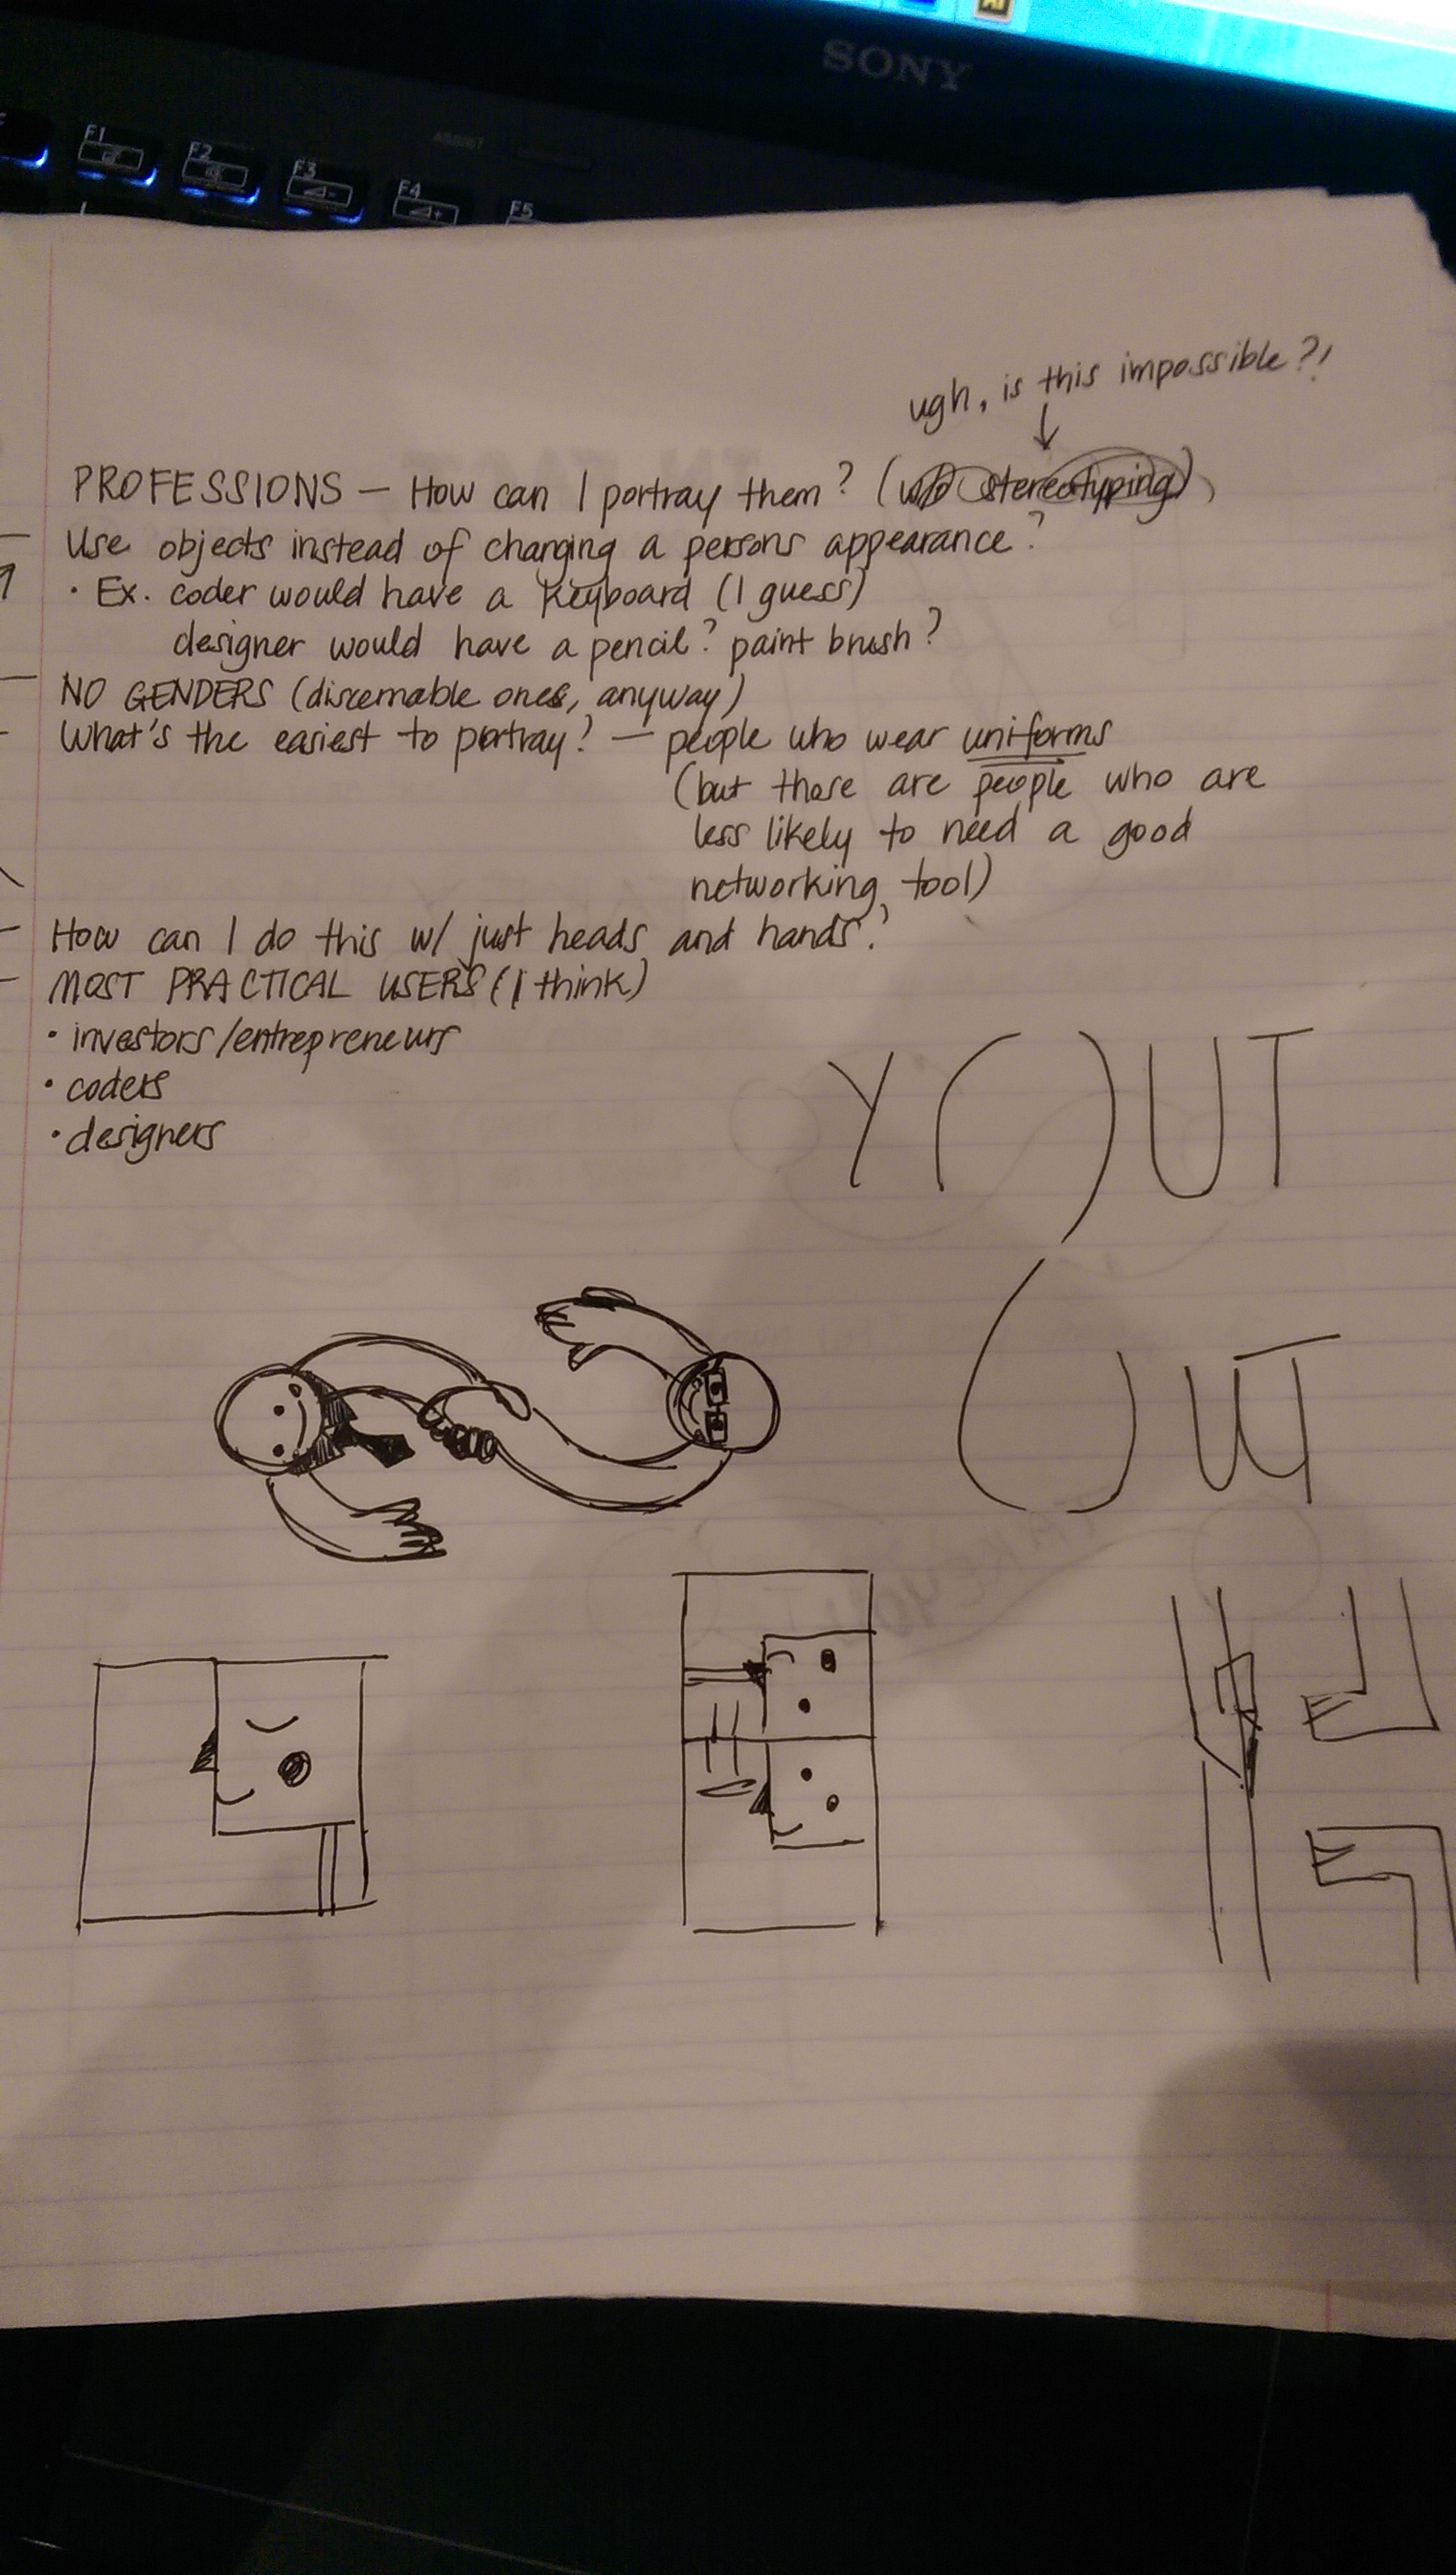 SONY
F1
F2
F3
F4
F5
ASSIST
ugh, is this impossible?!
PROFESSIONS — How can I portray them? (w/o stereotyping)
Use objects instead of changing a persons appearance?
• Ex. coder would have a keyboard (I guess)
designer would have a pencil? paint brush?
NO GENDERS (discernable ones, anyway)
What's the easiest to portray? — people who wear uniforms
(but those are people who are
less likely to need a good
networking tool)
How can I do this w/ just heads and hands?
MOST PRACTICAL USERS (I think)
• investors/entrepreneurs
• coders
• designers
Y()UT
()UT